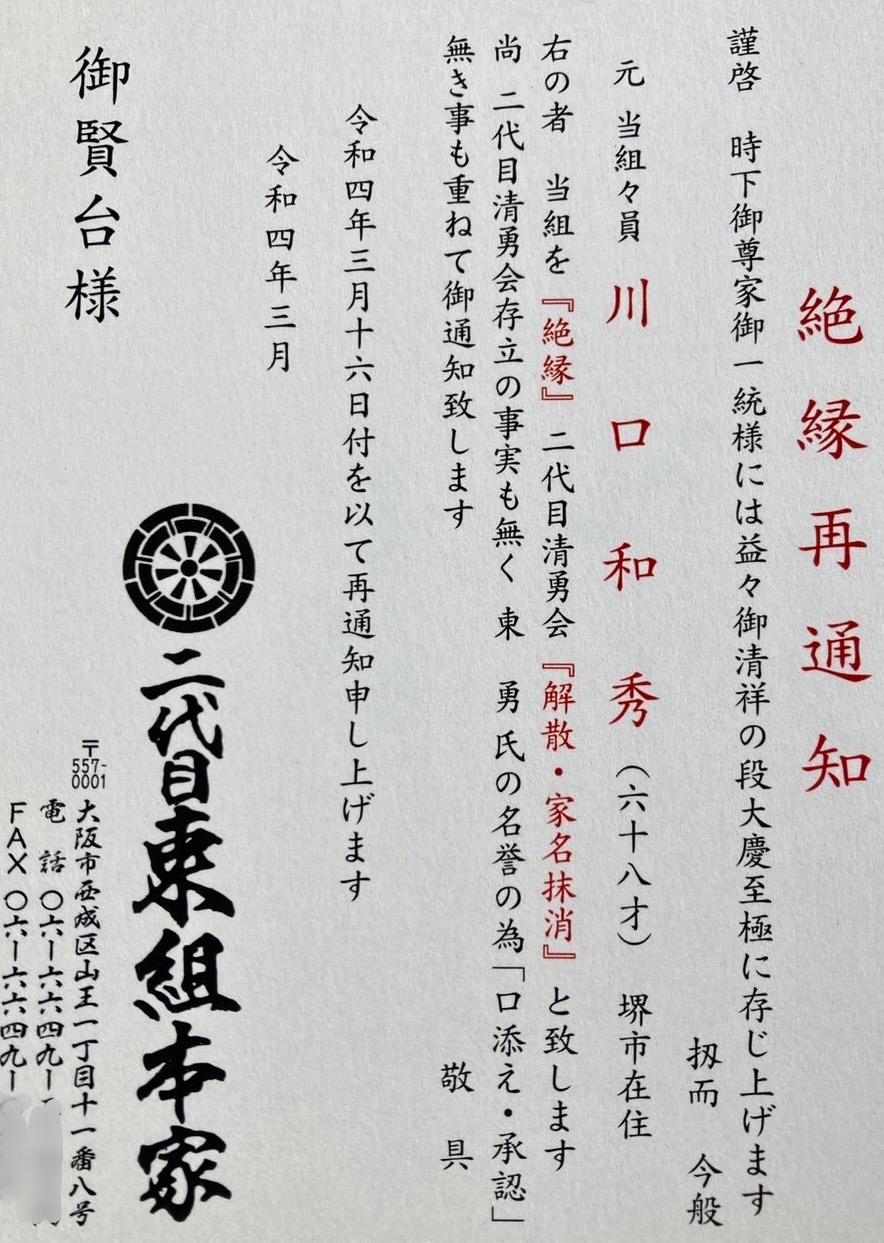 絶縁再通知
謹啓 時下御尊家御一統様には益々御清祥の段大慶至極に存じ上げます
扨而 今般
元 当組々員 川口和秀（六十八才） 堺市在住
右の者 当組を『絶縁』二代目清勇会『解散・家名抹消』と致します
尚 二代目清勇会存立の事実も無く 東 勇 氏の名誉の為「口添え・承認」
無き事も重ねて御通知致します 敬具
令和四年三月十六日付を以て再通知申し上げます
令和四年三月
二代目東組本家
御賢台様
〒557-0001 大阪市西成区山王一丁目十一番八号
電話 〇六ー六六四九ー
FAX 〇六ー六六四九ー